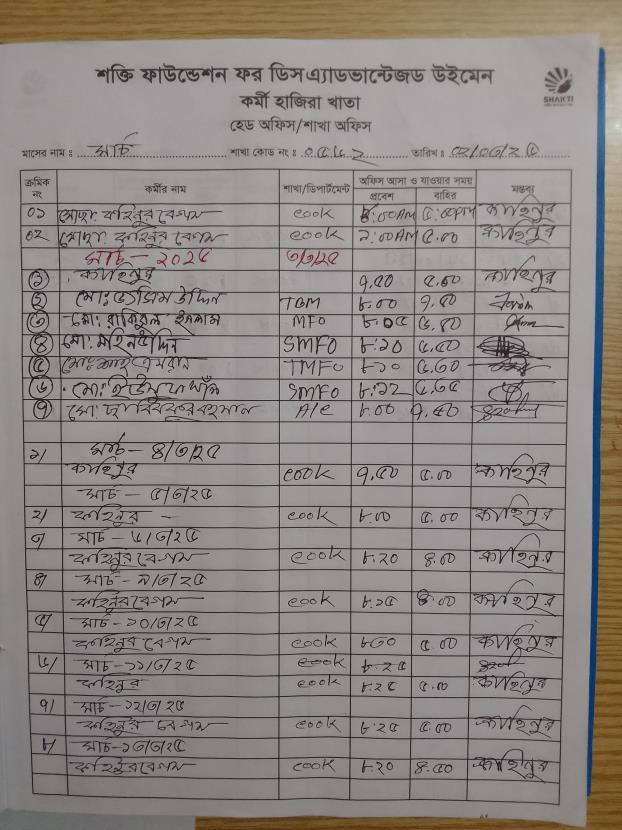 শক্তি ফাউন্ডেশন ফর ডিসএ্যাডভান্টেজড উইমেন
SHAKTI
কর্মী হাজিরা খাতা
হেড অফিস/শাখা অফিস
মাসের নাম : মার্চ শাখা কোড নং : ০৫৫২ তারিখ : ০২/০৩/২৫
ক্রমিক নং কর্মীর নাম শাখা/ডিপার্টমেন্ট অফিস আসা ও যাওয়ার সময় মন্তব্য
প্রবেশ বাহির
০১ মোছা: কহিনুর বেগম cook ৮:০০AM ৫:০০PM কাহিনুর
০২ মোছা: কহিনুর বেগম cook ৭:০০AM ৫.০০ কাহিনুর
মার্চ - ২০২৫ ৩/৩/২৫
১ কাহিনুর ৭.৫০ ৫.০০ কাহিনুর
২ মো: জসিম উদ্দিন TBM ৮.০০ ৭.৫০
৩ মো: রাকিবুল ইসলাম MFO ৮.০৫
৪ মো: মাইনউদ্দিন SMFO ৮:১০ ৫.৫০
৫ TMFO ৮:১০ ৫.৫০
৬ SMFO ৮:১২
৭ A/c ৮.০০ ৭.৫০
১/ মার্চ - ৪/৩/২৫
কাহিনুর cook ৭.৫০ ৫.০০ কাহিনুর
মার্চ - ৫/৩/২৫
২/ কহিনুর - cook ৮.০০ ৫.০০ কাহিনুর
৩/ মার্চ - ৬/৩/২৫
কহিনুর বেগম cook ৮.২০ ৪.০০ কাহিনুর
৪/ মার্চ - ৯/৩/২৫
কহিনুর বেগম cook ৮.১৫ ৪.০০ কাহিনুর
৫/ মার্চ - ১০/৩/২৫
কহিনুর বেগম cook ৮.৩০ ৫.০০ কাহিনুর
৬/ মার্চ - ১১/৩/২৫ cook ৮.২৫
কহিনুর cook ৮.২৫ ৫.০০ কাহিনুর
৭/ মার্চ - ১২/৩/২৫
কহিনুর বেগম cook ৮:২৫ ৫.০০ কাহিনুর
৮/ মার্চ - ১৩/৩/২৫
কহিনুর বেগম cook ৮.২০ ৪.৫০ কাহিনুর